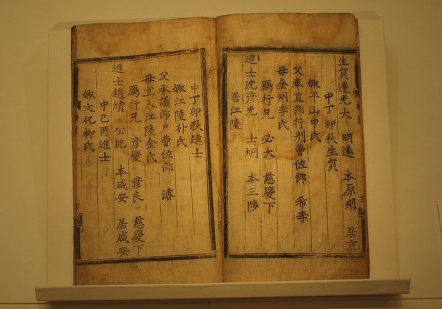 生員邊光大 明遠 本原州 居京
中丁卯秋生員
娵平山申氏
父奉直郎行刑曹佐郎 希李
母全州李氏
鴈行兄 必大 慈慶下
進士沈彦光 士炯 本三陟
居江陵
中丁卯秋進士
娵江陵朴氏
父承議郎戶曹佐郎 濬
母宜人江陵金氏
鴈行兄 彦慶 彦良 慈慶下
進士趙績 公 本咸安 居咸安
中己丙進士
娵文化柳氏